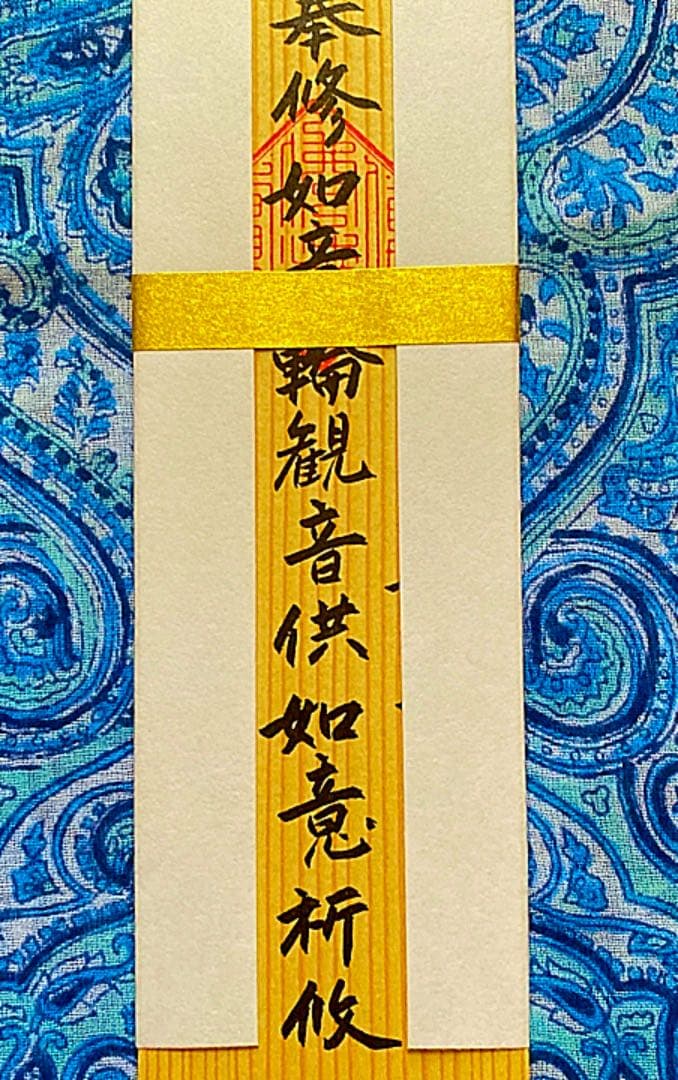 奉修如意輪観音供如意祈攸